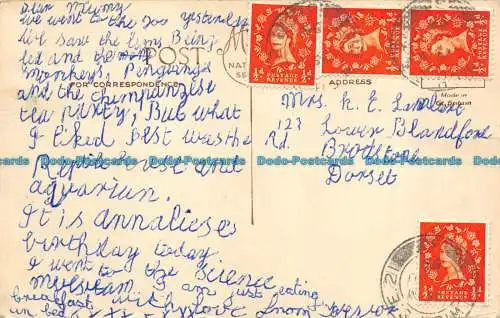 dear Mumy
We went to the Zoo yesterday
We saw the lions Being
fed and the
monkeys, Penguins
and the chimpanzise
tea party; But what
I liked Best was the
Reptile house and
aquariun.
It is annalieses
birthday today.
I went to the Science
Museam I am just eating
breakfast with
in bed
POST
FOR CORRESPONDENCE
ADDRESS
Made in
Gt. Britain
Mrs. K. E. Lambert
123 Lower Blandford
Rd.
Broadstone
Dorset
½d ½d
POSTAGE
REVENUE
½d ½d
POSTAGE
REVENUE
½d ½d
POSTAGE
REVENUE
½d ½d
POSTAGE
REVENUE
Dodo-Postcards Dodo-Postcards Dodo-Postcards Dodo-Postcards Dodo-Postcards